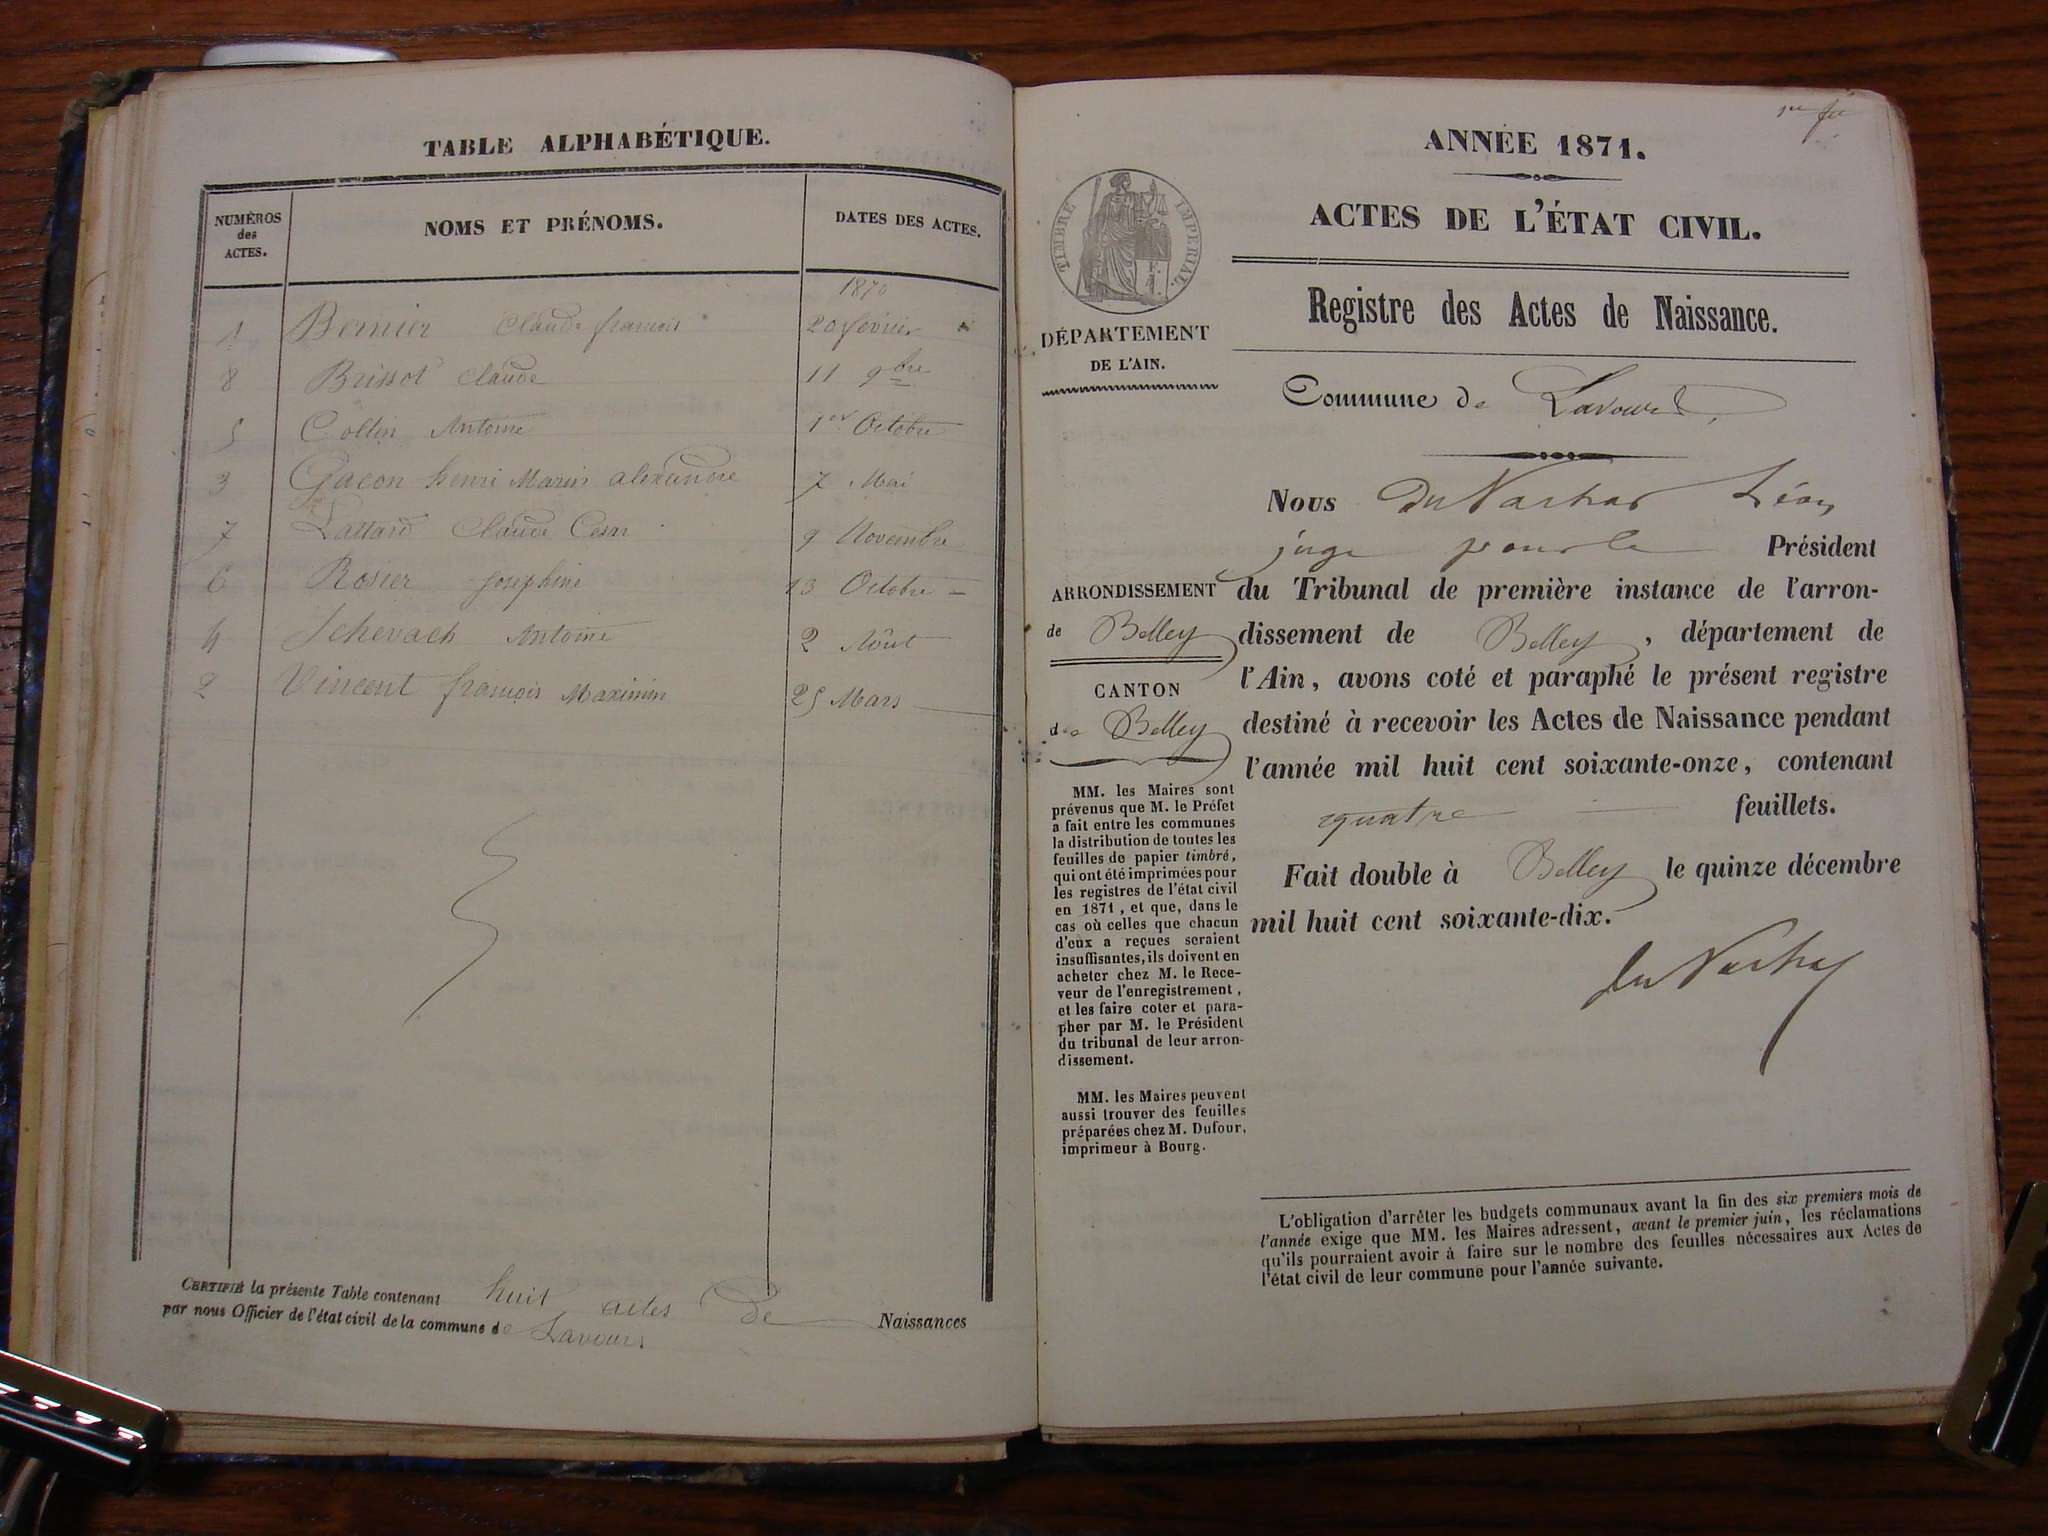 TABLE ALPHABÉTIQUE.
NUMÉROS des ACTES. NOMS ET PRÉNOMS. DATES DES ACTES.
1870
1 Bernier Claude françois 20 février
8 Brissot Claude 11 9bre
5 Collin Antoine 1er Octobre
3 Gacon henri Marin alexandre 7 Mai
7 Lallard Claude César 9 Novembre
6 Rosier Josephine 13 Octobre
4 Schevach Antoine 2 Août
2 Vincent françois Maximin 25 Mars
CERTIFIÉ la présente Table contenant huit actes de Naissances
par nous Officier de l'état civil de la commune de Lavours
ANNÉE 1871.
ACTES DE L'ÉTAT CIVIL.
TIMBRE IMPÉRIAL.
DÉPARTEMENT
DE L'AIN.
Registre des Actes de Naissance.
Commune de Lavours
Nous Léon
juge pour le Président
du Tribunal de première instance de l'arron-
dissement de Belley, département de
l'Ain, avons coté et paraphé le présent registre
destiné à recevoir les Actes de Naissance pendant
l'année mil huit cent soixante-onze, contenant
quatre feuillets.
Fait double à Belley le quinze décembre
mil huit cent soixante-dix.
ARRONDISSEMENT
de Belley
CANTON
de Belley
MM. les Maires sont
prévenus que M. le Préfet
a fait entre les communes
la distribution de toutes les
feuilles de papier timbré,
qui ont été imprimées pour
les registres de l'état civil
en 1871, et que, dans le
cas où celles que chacun
d'eux a reçues seraient
insuffisantes, ils doivent en
acheter chez M. le Rece-
veur de l'enregistrement,
et les faire coter et para-
pher par M. le Président
du tribunal de leur arron-
dissement.
MM. les Maires peuvent
aussi trouver des feuilles
préparées chez M. Dufour,
imprimeur à Bourg.
L'obligation d'arrêter les budgets communaux avant la fin des six premiers mois de
l'année exige que MM. les Maires adressent, avant le premier juin, les réclamations
qu'ils pourraient avoir à faire sur le nombre des feuilles nécessaires aux Actes de
l'état civil de leur commune pour l'année suivante.